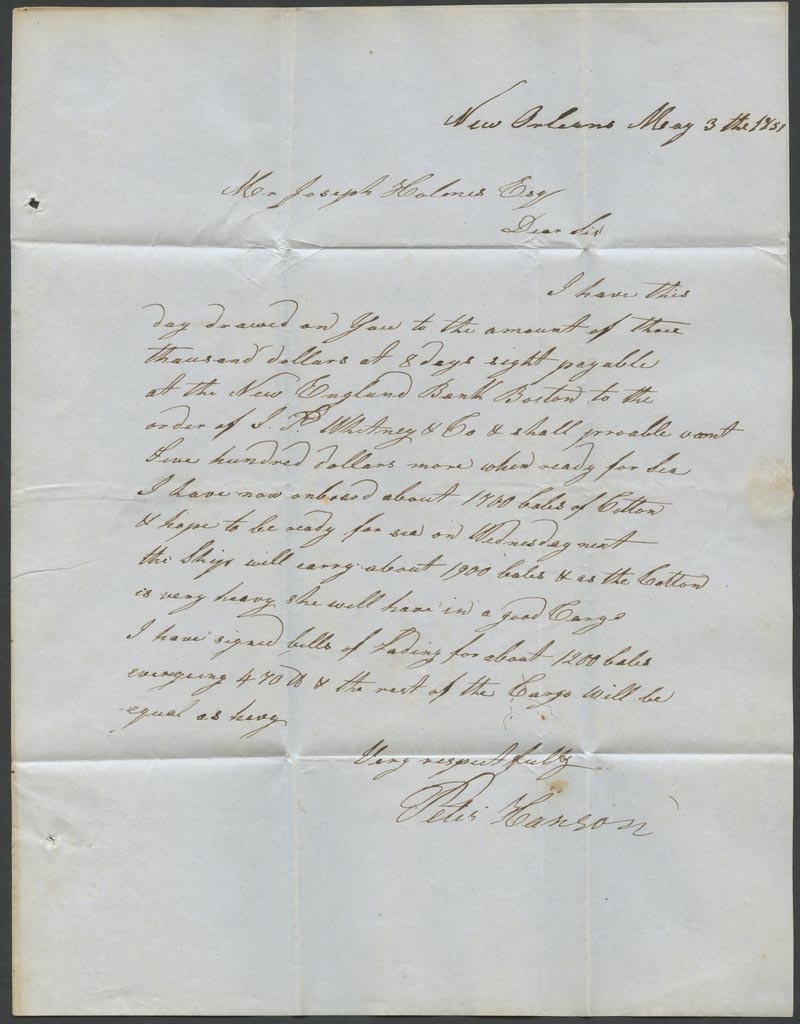 New Orleans May 3 the 1851
Mr Joseph Holmes Esqr
Dear Sir
I have this
day drawed on You to the amount of three
thausand dollars at 8 days sight payable
at the New England Bank Boston to the
order of I. P. Whitney & Co & shall provable want
five hundred dollars more when ready for Sea
I have now onboard about 1700 bales of Cotton
& hope to be ready for sea on Wednesday next
the Ship will carry about 1900 bales & as the Cotton
is very heavy she will have in a good Cargo
I have signed bills of Lading for about 1200 bales
evergeing 470 lb & the rest of the Cargo will be
equal as hevy
Very respectfully
Peter Hanson